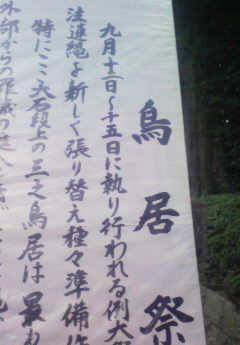 鳥居祭
九月十三日〜十五日に執り行われる例大
注連縄を新しく張り替え種々準備作
特にここ大石段上の三之鳥居は最
外部からの